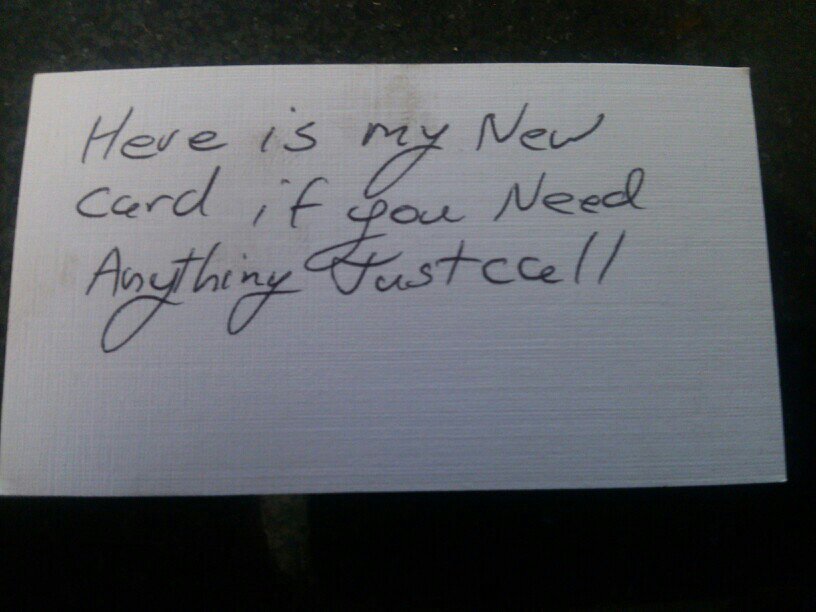 Here is my New
Card if you Need
Anything Just call